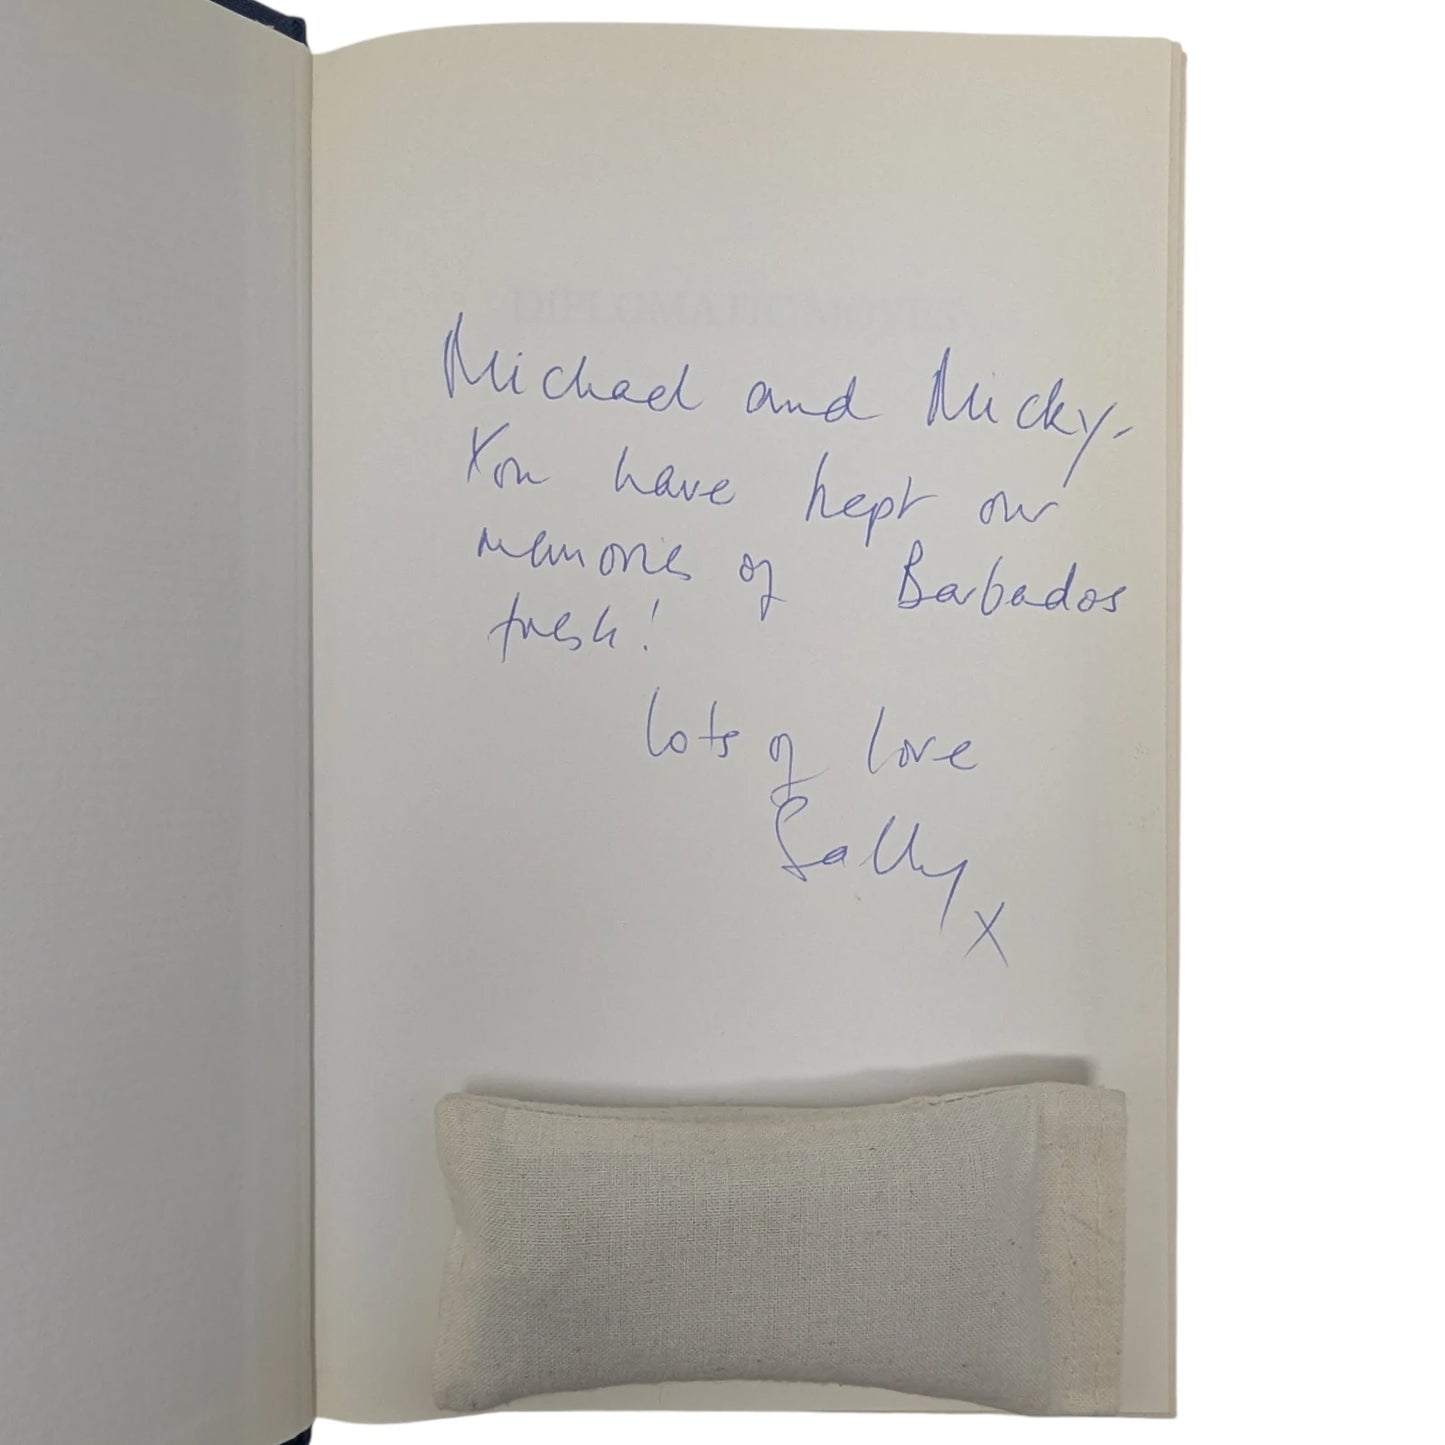 DIPLOMATIC MOVES
Michael and Micky.
You have kept our
memories of Barbados
fresh!
lots of love
Sally x